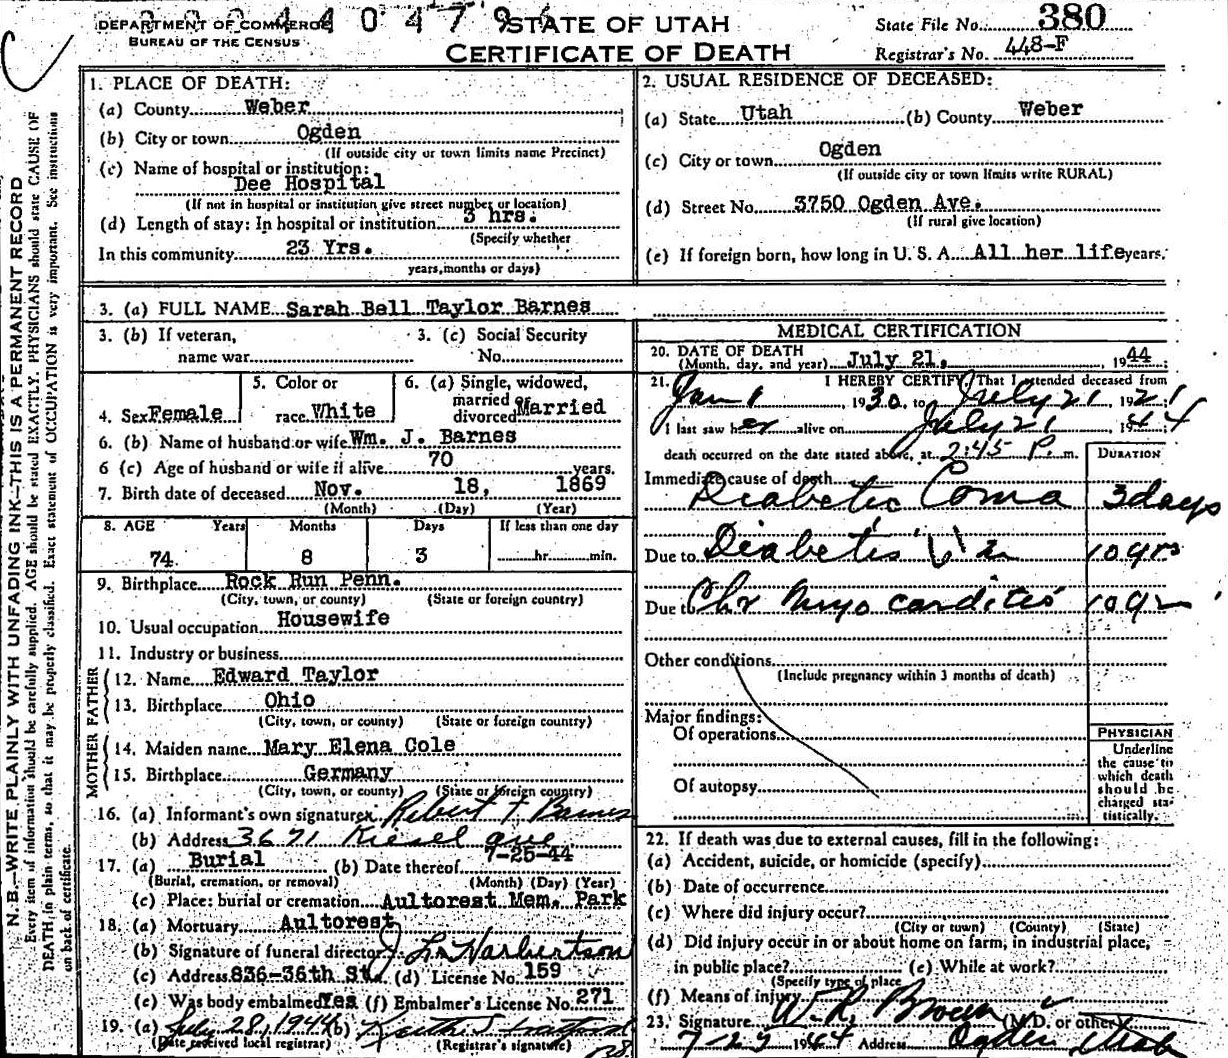 DEPARTMENT OF COMMERCE
BUREAU OF THE CENSUS
STATE OF UTAH
CERTIFICATE OF DEATH
State File No. 380
Registrar's No. 448-F
N. B.—WRITE PLAINLY WITH UNFADING INK—THIS IS A PERMANENT RECORD
Every item of information should be carefully supplied. AGE should be stated EXACTLY. PHYSICIANS should state CAUSE OF
DEATH in plain terms, so that it may be properly classified. Exact statement of OCCUPATION is very important. See instructions
on back of certificate.
1. PLACE OF DEATH:
(a) County Weber
(b) City or town Ogden
(If outside city or town limits name Precinct)
(c) Name of hospital or institution:
Dee Hospital
(If not in hospital or institution give street number or location)
(d) Length of stay: In hospital or institution 3 hrs.
(Specify whether
In this community 23 Yrs.
years, months or days)
2. USUAL RESIDENCE OF DECEASED:
(a) State Utah (b) County Weber
(c) City or town Ogden
(If outside city or town limits write RURAL)
(d) Street No. 3750 Ogden Ave.
(If rural give location)
(e) If foreign born, how long in U. S. A. All her life years.
3. (a) FULL NAME Sarah Bell Taylor Barnes
3. (b) If veteran, 3. (c) Social Security
name war No.
4. Sex Female
5. Color or
race White
6. (a) Single, widowed,
married or
divorced Married
6. (b) Name of husband or wife Wm. J. Barnes
6 (c) Age of husband or wife if alive 70 years.
7. Birth date of deceased Nov. 18, 1869
(Month) (Day) (Year)
8. AGE Years Months Days If less than one day
74 8 3 hr. min.
9. Birthplace Rock Run Penn.
(City, town, or county) (State or foreign country)
10. Usual occupation Housewife
11. Industry or business
FATHER
12. Name Edward Taylor
13. Birthplace Ohio
(City, town, or county) (State or foreign country)
MOTHER
14. Maiden name Mary Elena Cole
15. Birthplace Germany
(City, town, or county) (State or foreign country)
16. (a) Informant's own signature x Robert T Barnes
(b) Address 3671 Kiesel ave
17. (a) Burial (b) Date thereof 7-25-44
(Burial, cremation, or removal) (Month) (Day) (Year)
(c) Place: burial or cremation Aultorest Mem. Park
18. (a) Mortuary Aultorest
(b) Signature of funeral director J. L. Harbertson
(c) Address 836-36th St. (d) License No. 159
(e) Was body embalmed Yes (f) Embalmer's License No. 271
19. (a) July 28, 1944 (b)
(Date received local registrar) (Registrar's signature)
MEDICAL CERTIFICATION
20. DATE OF DEATH
(Month, day, and year) July 21, 1944
21. I HEREBY CERTIFY, That I attended deceased from
Jan 1 1930, to July 21, 1921
I last saw her alive on July 21 1944
death occurred on the date stated above, at 2:45 P. m.
DURATION
Immediate cause of death
Diabetic Coma 3 days
Due to Diabetis 10 yrs
Due to Chr Myo carditis 10 yr
Other conditions
(Include pregnancy within 3 months of death)
Major findings:
Of operations
Of autopsy
PHYSICIAN
Underline
the cause to
which death
should be
charged sta-
tistically.
22. If death was due to external causes, fill in the following:
(a) Accident, suicide, or homicide (specify)
(b) Date of occurrence
(c) Where did injury occur?
(City or town) (County) (State)
(d) Did injury occur in or about home on farm, in industrial place,
in public place? (e) While at work?
(Specify type of place
(f) Means of injury
23. Signature W. R. Brown (M.D. or other)
1944 Address Ogden Utah